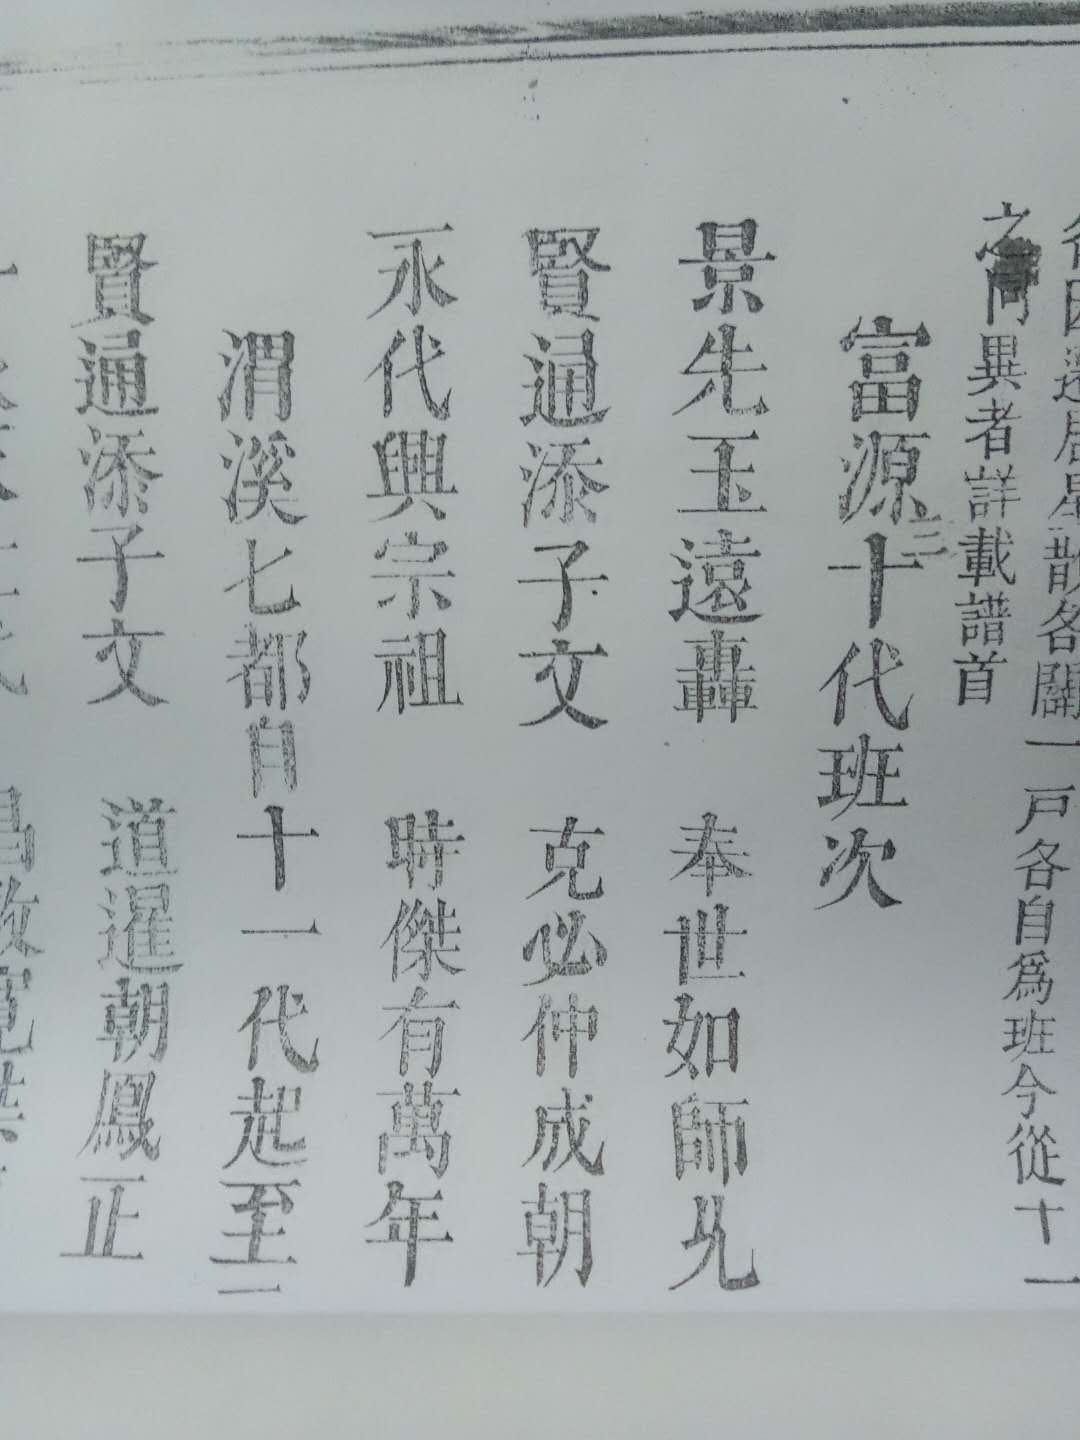 因遷居星散各闢一戸各自爲班今從十一
之同異者詳載譜首
富源十代班次
三
景先玉遠轟 奉世如師凣
賢通添子文 克必仲成朝
永代興宗祖 時傑有萬年
渭溪七都自十一代起至二
賢通添子文 道暹朝鳳正